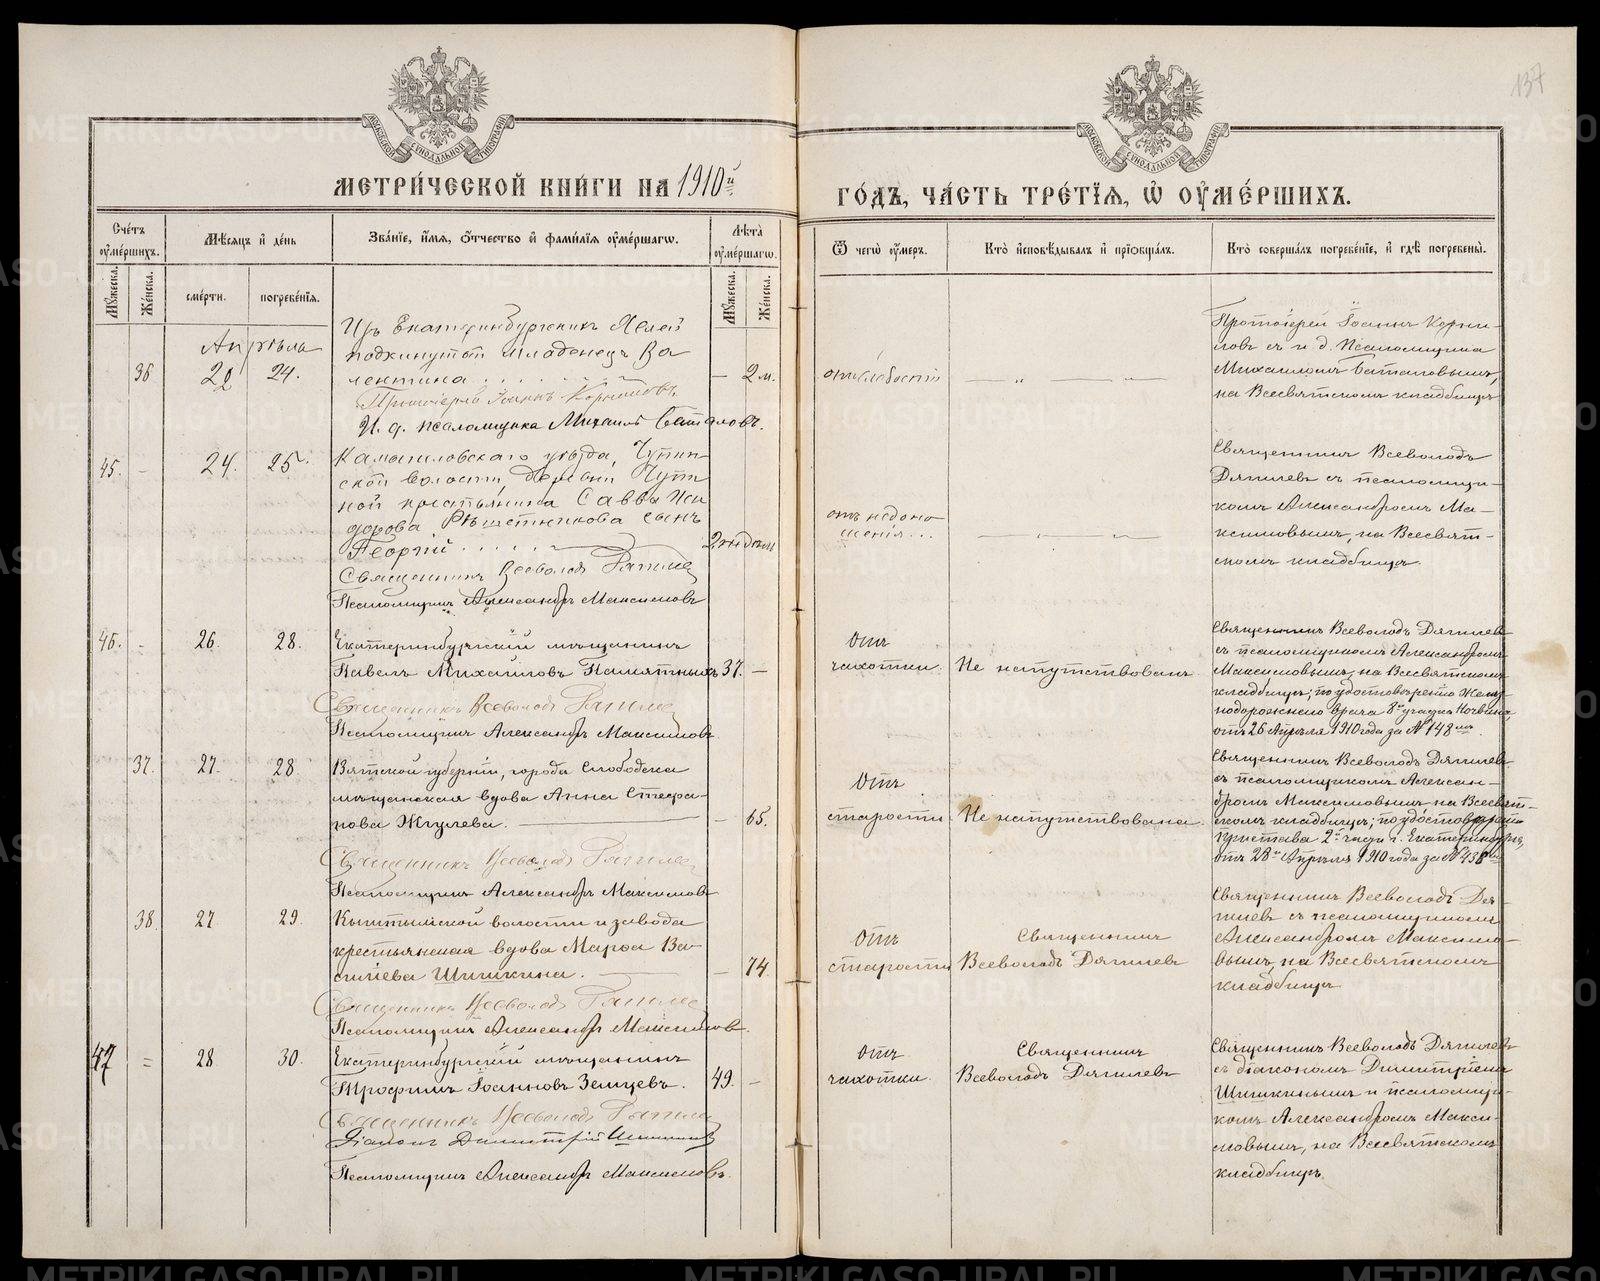 137
МОСКОВСКОЙ СѴНОДАЛЬНОЙ ТИПОГРАФІИ
МОСКОВСКОЙ СѴНОДАЛЬНОЙ ТИПОГРАФІИ
МЕТРИ́ЧЕСКОЙ КНИ́ГИ НА 1910й
ГО́ДЪ, ЧА́СТЬ ТРЕ́ТІѦ, Ѡ҆ ОУ҆МЕ́РШИХЪ.
Сче́тъ оу҆ме́ршихъ.
Мѣ́сяцъ и҆ де́нь
Зва́нїе, и҆́мѧ, ѻ҆́тчество и҆ фами́лїѧ оу҆ме́ршагѡ.
Лѣ́та оу҆ме́ршагѡ.
Ѿ чегѡ̀ оу҆́меръ.
Кто̀ и҆сповѣ́дывалъ и҆ прїѡбща́лъ.
Кто̀ соверша́лъ погребе́нїе, и҆ гдѣ̀ погребены̀.
Мꙋ́жеска.
Же́нска.
сме́рти.
погребе́нїѧ.
Мꙋ́жеска.
Же́нска.
Апрѣль
36
20
24.
подкинутый младенецъ Ва
лентина
— 2 м.
Протоіерей Іоаннъ Корниловъ.
И. д. псаломщика Михаилъ Баталовъ.
отъ слабости
— „ — „ —
Протоіерей Іоаннъ Корни-
ловъ съ и. д. Псаломщика
Михаиломъ Баталовымъ,
на Всесвятскомъ кладбищѣ
45. -
24.
25.
Камышловскаго уѣзда,
ской волости, деревни
ной крестьянина Саввы Иси
дорова Рѣшетникова сынъ
Георгій
2 недѣли
Священникъ Всеволодъ Дягилев
Псаломщикъ Александръ Максимовъ
отъ недоно
шенія...
— „ — „ —
Священникъ Всеволодъ
Дягилевъ съ псаломщи-
комъ Александромъ Ма-
ксимовымъ, на Всесвят-
скомъ кладбищѣ.
46. -
26.
28.
Екатеринбургскій мѣщанинъ
Павелъ Михайловъ Памятныхъ
37. —
Священникъ Всеволодъ Дягилев
Псаломщикъ Александръ Максимовъ
отъ
чахотки.
Не напутствованъ
Священникъ Всеволодъ Дягилевъ
съ псаломщикомъ Александромъ
Максимовымъ, на Всесвятскомъ
кладбищѣ; по удостоверенію Желѣз-
нодорожнаго врача 8го участка
отъ 26 Апрѣля 1910 года за № 148мъ.
37.
27.
28
Вятской губерніи, города Слободска
мѣщанская вдова Анна Стефа-
нова Жгулева.
— 65.
Священникъ Всеволодъ Дягилев
Псаломщикъ Александръ Максимовъ
отъ
старости
Не напутствована
Священникъ Всеволодъ Дягилевъ
съ псаломщикомъ Алексан-
дромъ Максимовымъ на Всесвят-
скомъ кладбищѣ; по удостоверенію
пристава 2й части г. Екатеринбурга,
отъ 28го Апрѣля 1910 года за №
38.
27
29.
Кыштымской волости и завода
крестьянская вдова Марѳа Ва-
силіева Шишкина.
— 74
Священникъ Всеволодъ Дягилев
Псаломщикъ Александръ Максимовъ.
отъ
старости
Священникъ
Всеволодъ Дягилевъ
Священникъ Всеволодъ Дя-
гилевъ съ псаломщикомъ
Александромъ Максимо-
вымъ, на Всесвятскомъ
кладбищѣ
47 =
28
30.
Екатеринбургскій мѣщанинъ
Трофимъ Іоанновъ Земцевъ.
49. -
Священникъ Всеволодъ Дягилев
Діаконъ Димитрій Шишкинъ
Псаломщикъ Александръ Максимовъ.
отъ
чахотки.
Священникъ
Всеволодъ Дягилевъ
Священникъ Всеволодъ Дягилевъ
съ діакономъ Димитріемъ
Шишкинымъ и псаломщи-
комъ Александромъ Макси-
мовымъ, на Всесвятскомъ
кладбищѣ.
METRIKI.GASO-URAL.RU